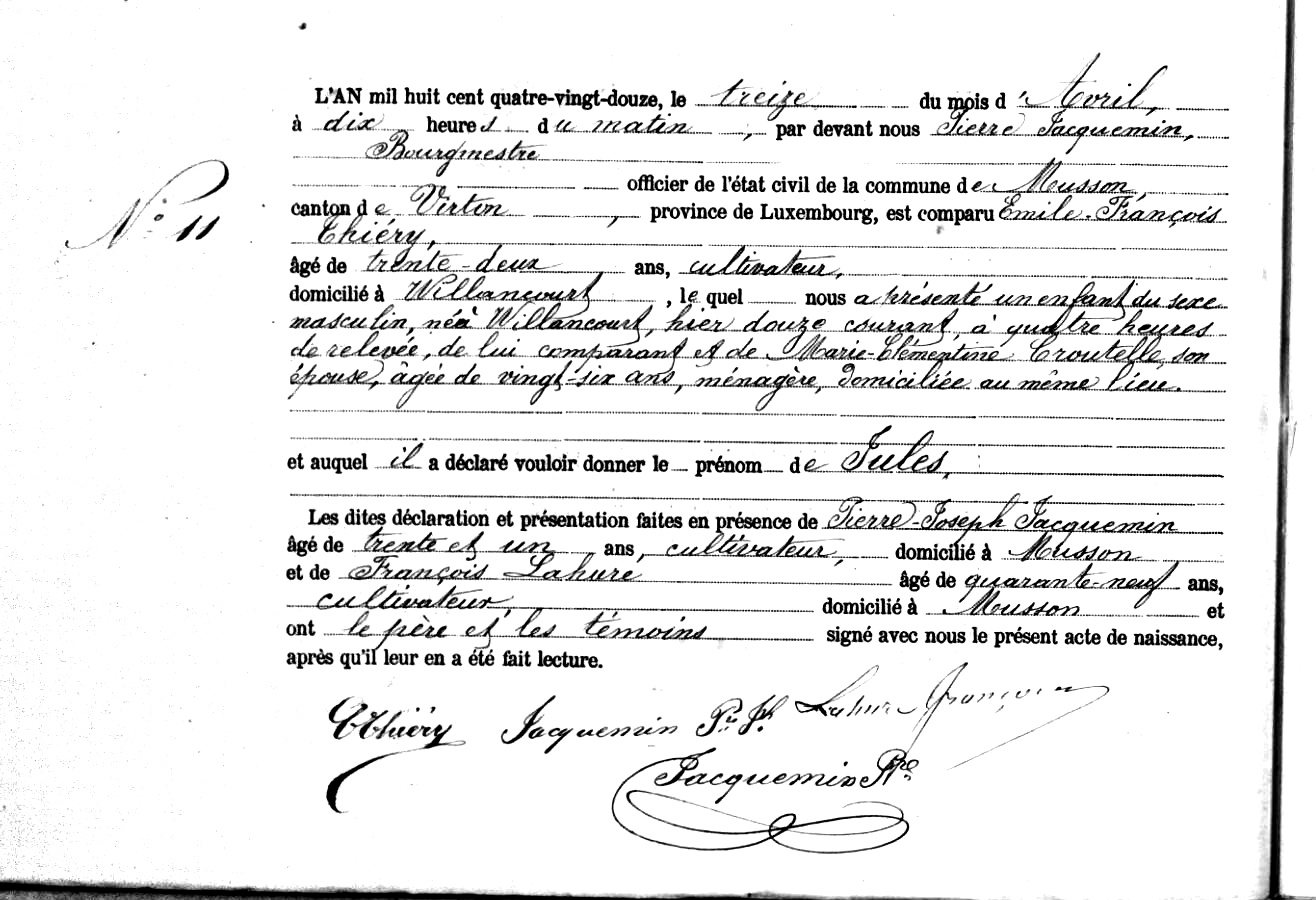 L'AN mil huit cent quatre-vingt-douze, le treize du mois d'Avril,
à dix heures du matin, par devant nous Pierre Jacquemin,
Bourgmestre
officier de l'état civil de la commune de Musson,
N° 11
canton de Virton, province de Luxembourg, est comparu Emile-François
Thiéry,
âgé de trente-deux ans, cultivateur,
domicilié à Willancourt, lequel nous a présenté un enfant du sexe
masculin, né à Willancourt, hier douze courant, à quatre heures
de relevée, de lui comparant et de Marie-Clémentine Croutelle, son
épouse, âgée de vingt-six ans, ménagère, domiciliée au même lieu.
et auquel il a déclaré vouloir donner le prénom de Jules.
Les dites déclaration et présentation faites en présence de Pierre-Joseph Jacquemin
âgé de trente et un ans, cultivateur, domicilié à Musson
et de François Lahure âgé de quarante-neuf ans,
cultivateur, domicilié à Musson et
ont le père et les témoins signé avec nous le présent acte de naissance,
après qu'il leur en a été fait lecture.
EThiéry Jacquemin Pre Jh. Lahure François
Jacquemin Pre